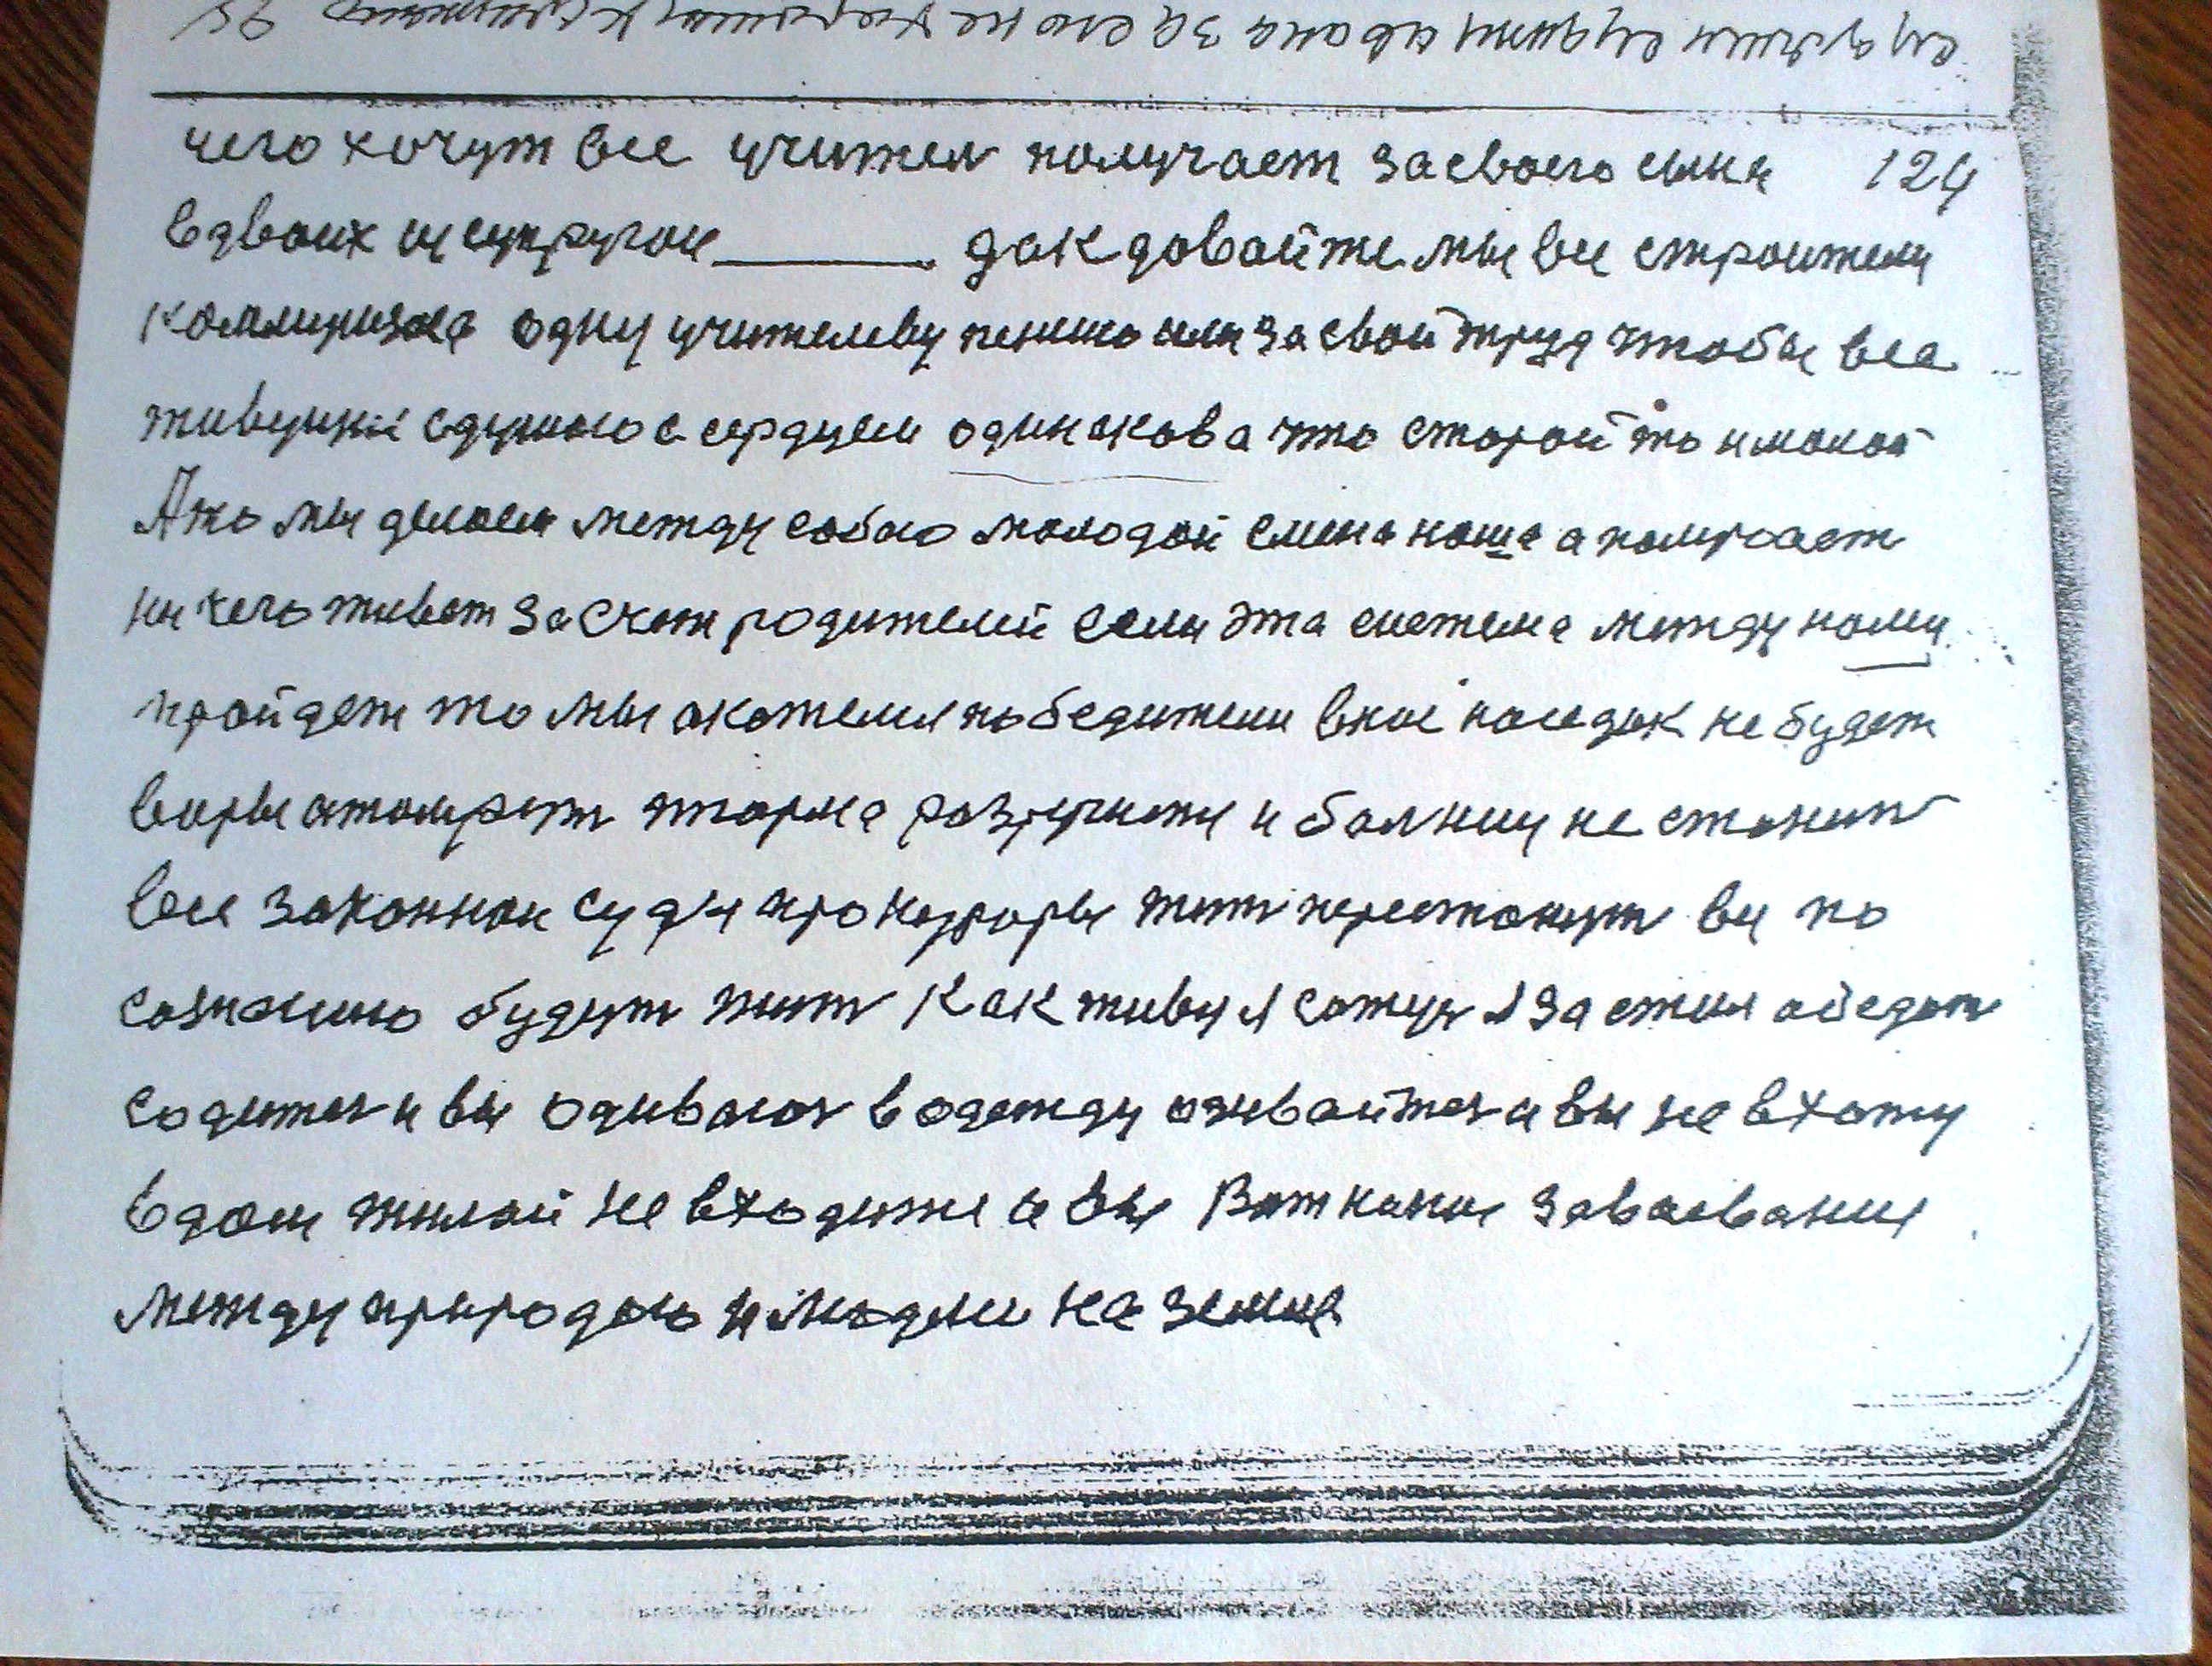 чего хочут все учител получает за своего сына 124
вдвоих и супругои дак давайте мы все строители
коммунизма одну учителеву пенсию или за свой труд чтобы все
живущии с душою с сердцем одинакова что старой то и малой
А то мы делаем между собаю молодой смена наша а получает
ни чего живет за счет родителей если эта система между нами
пройдет то мы окажемся победители вное поседок не будет
воры атомрет тюрма разрушит и болниц не станит
все законнои суди прокуроры жит перестанут все по
сознанию будут жит Как живу я сажус я за стол обедат
содитес и вы одиваюс в одежду одивайтес и вы не вхожу
в дом жилой не входите и вы Вот какие завоевание
между природою и людми на земле